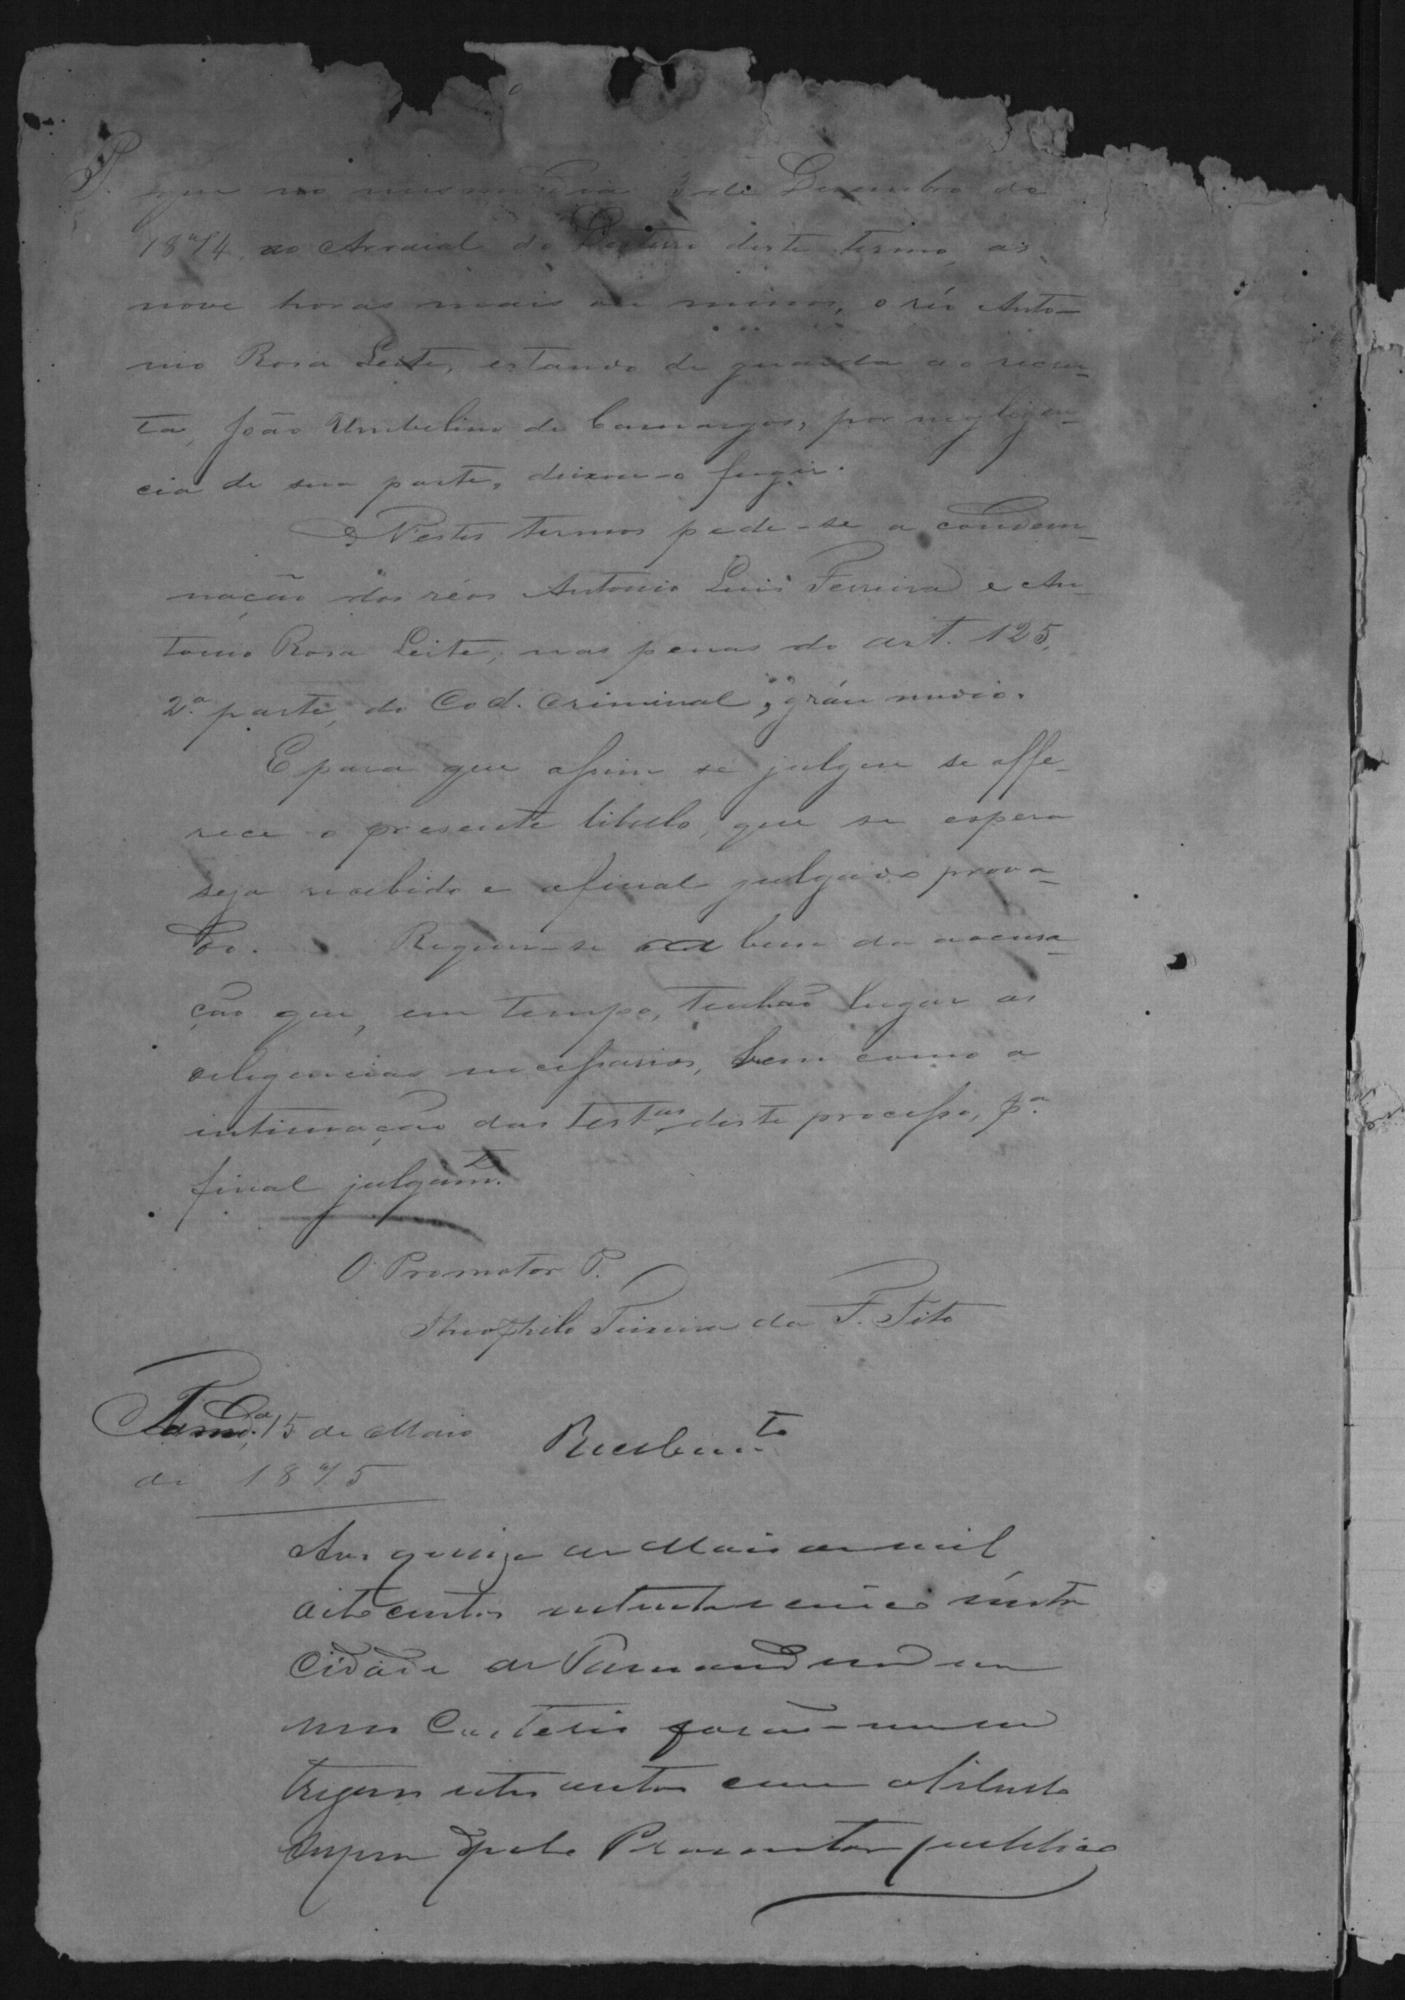 P. que no mesmo dia 3 de Dezembro de
1874, no Arraial do Desterro deste termo, as
nove horas mais ou menos, o réo Anto-
nio Rosa Leite, estando de guarda ao recru-
ta, João Umbelino de Camargos, por negligen-
cia de sua parte, deixou-o fugir.
Nestes termos pede-se a condem-
nação dos réos Antonio Luis Ferreira e An-
tonio Rosa Leite, nas penas do art. 125,
2.ª parte, do Cod. Criminal, gráu medio.
E para que assim se julgue se offe-
rece o presente libello, que se espera
seja recebido e afinal julgado prova-
do. Requer-se a bem da accusa-
ção que, em tempo, tenhão lugar as
deligencias necessarias, bem como a
intimação das testas deste processo, pª
final julgamto.
O Promotor P.
Theophilo Pereira da F.
15 de Maio
de 1875
Recebimto
Aos quinze de Maio de mil
oito centos setenta e cinco nesta
Cidade de em
meu Cartorio forão-me en
tregues estes autos com o Libello
supra pelo Promotor publico